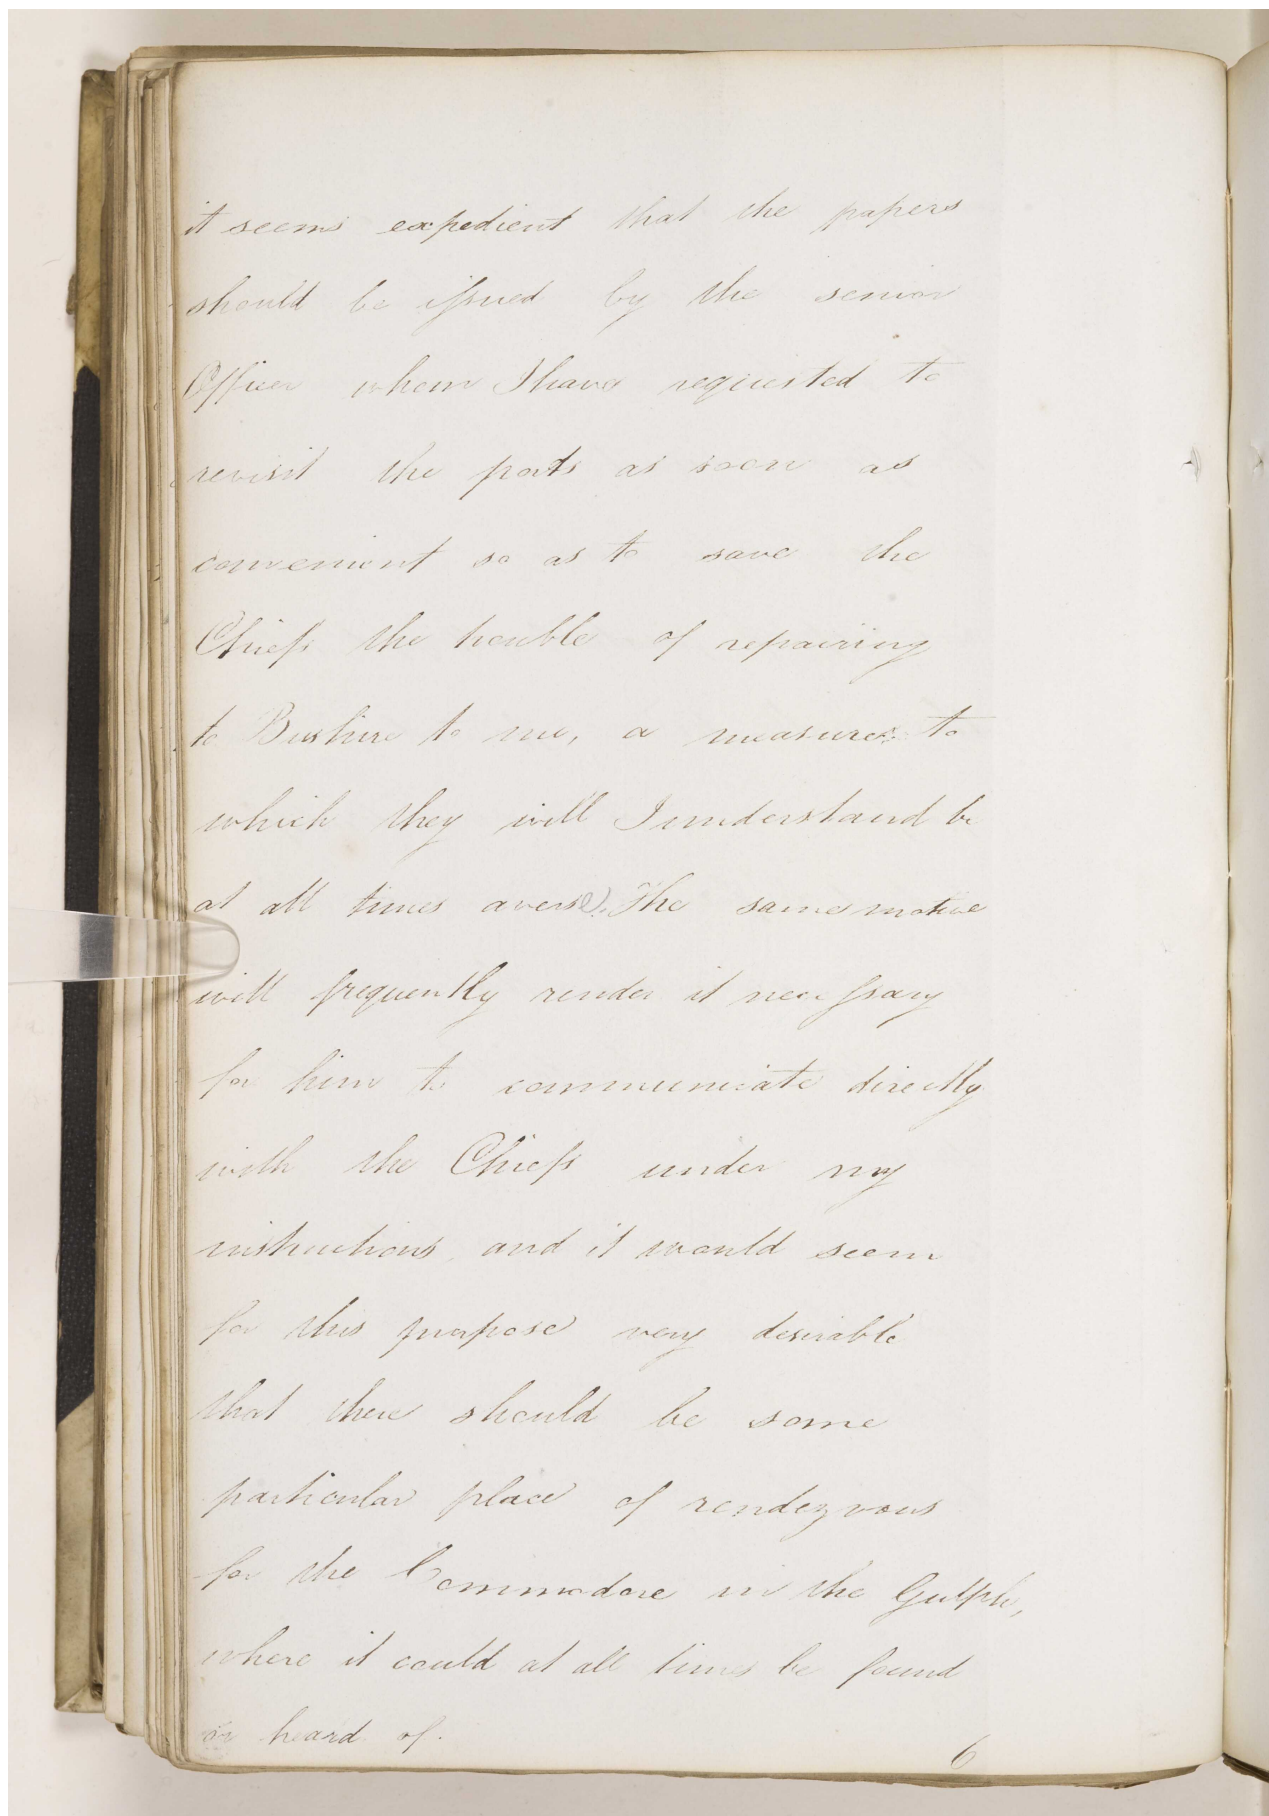 it seems expedient that the papers
should be issued by the senior
Officer whom I have requested to
revisit the ports as soon as
convenient so as to save the
Chiefs the trouble of repairing
to Bushire to me, a measure to
which they will I understand be
at all times averse. The same motive
will frequently render it necessary
for him to communicate directly
with the Chiefs under my
instructions and it would seem
for this purpose very desirable
that there should be some
particular place of rendezvous
for the Commodore in the Gulph,
where it could at all times be found
or heard of.
6